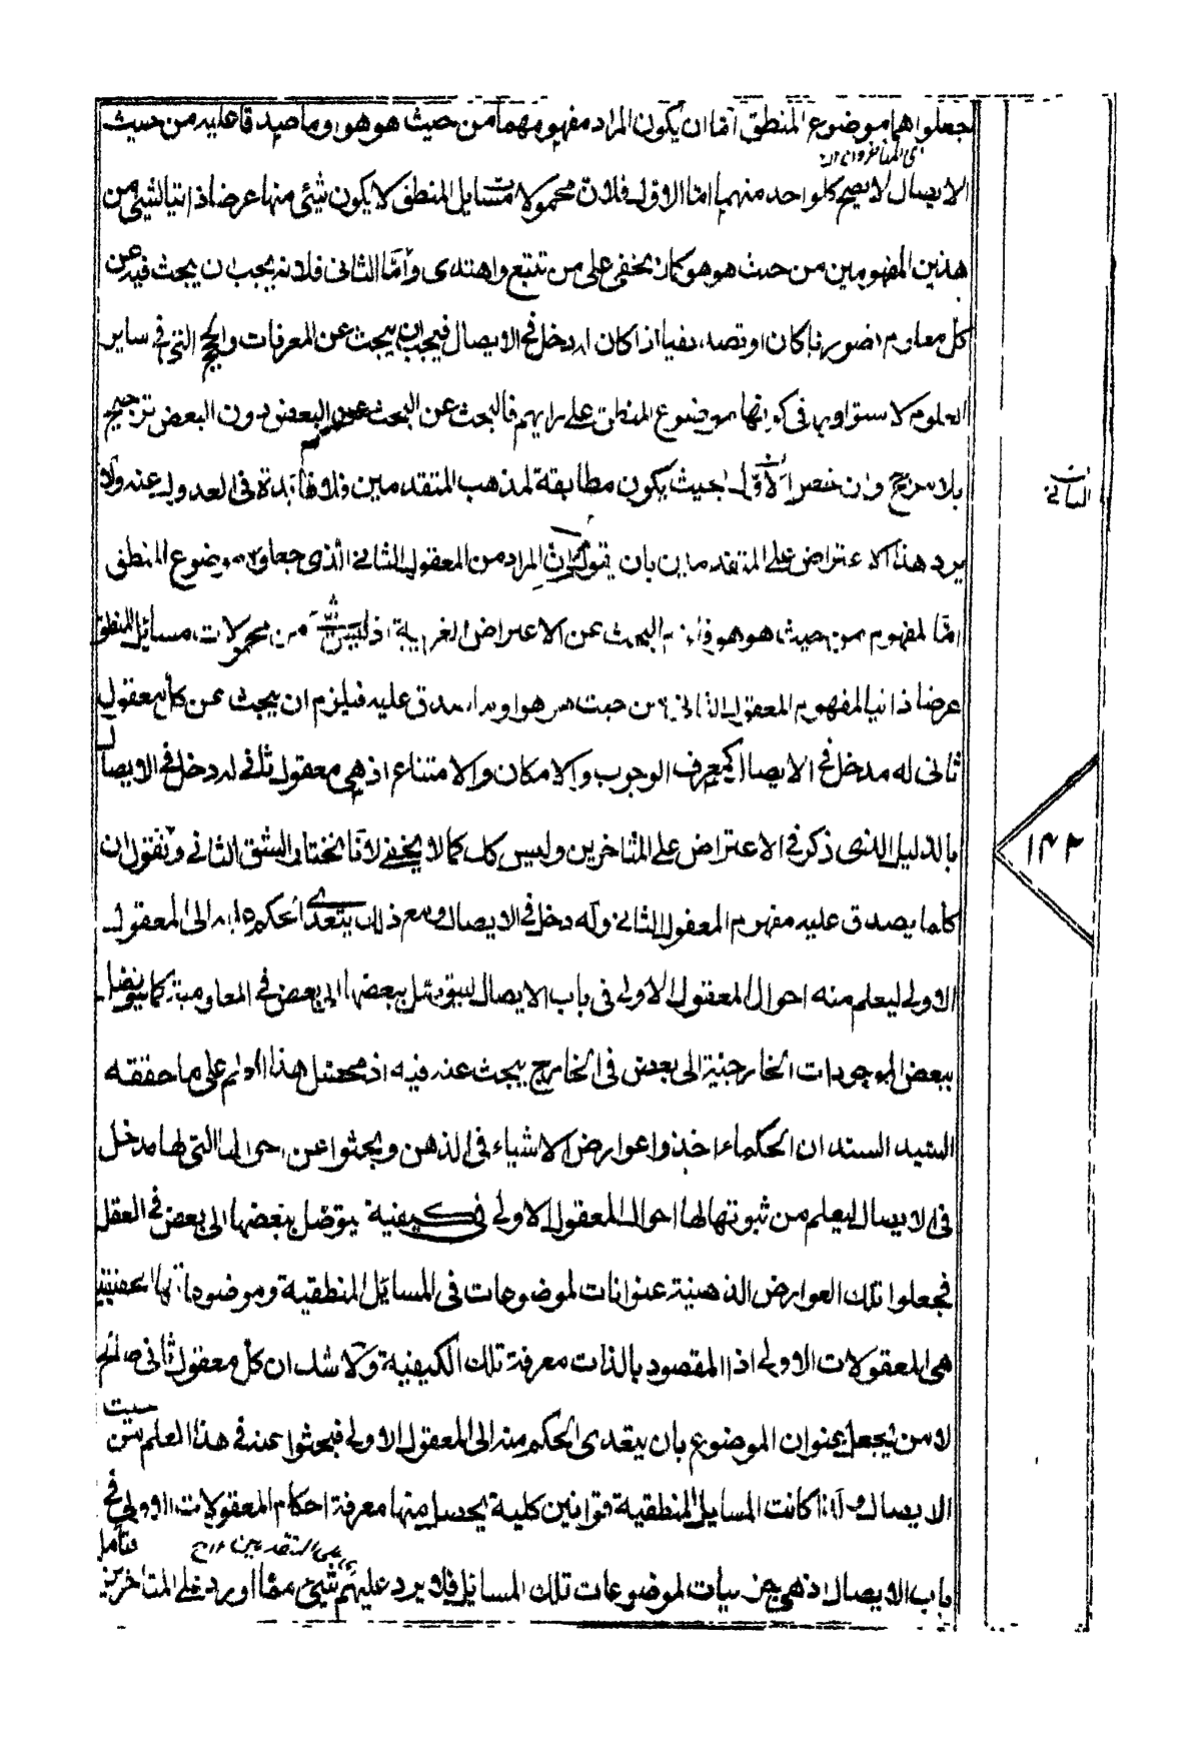 جعلوا هما موضوع المنطق اما ان يكون المراد مفهومهما من حيث هو هو او ما صدقا عليه من حيث
الايصال لا يصح كلواحد منهما اما الاول فلان محمولات مسايل المنطق لا يكون شيئى منها عرضا ذاتيا لشيئ من
هذين المفهومين من حيث هو هو كما لا يخفى على من تتبع واهتدى واما الثانى فلانه يجب ان يبحث فيه عن
كل معلوم تصوريا كان او تصديقيا اذا كان له دخل فى الايصال فيجب ان يبحث عن المعرفات والحجج التى فى ساير
العلوم لاستوائها فى كونها موضوع المنطق على رايهم فالبحث عن البعض دون البعض ترجيح
بلا مرجح وان خص الاول بحيث يكون مطابقة لمذهب المتقدمين فلا فائدة فى العدول عنه ولا
الثانى
يرد هذا الاعتراض على المتقدمين بان يقول ان المراد من المعقول الثانى الذى جعلوه موضوع المنطق
اما المفهوم من حيث هو هو فيلزم البحث عن الاعراض الغريبة اذ ليس شيئ من محمولات مسائل المنطق
عرضا ذاتيا لمفهوم المعقول الثانى من حيث هو هو او ما صدق عليه فيلزم ان يبحث عن كل معقول
ثانى له مدخل فى الايصال كمعرف الوجوب والامكان والامتناع اذ هى معقول ثانى له دخل فى الايصال
١٤٢
بالدليل الذى ذكر فى الاعتراض على المتاخرين وليس كل كما لا يخفى لانا نختار الشق الثانى ونقول ان
كلما يصدق عليه مفهوم المعقول الثانى وله دخل فى الايصال ومع ذلك يتعدى الحكم عليه الى المعقول
الاولى ليعلم منه احوال المعقول الاولى فى باب الايصال ليتوصل ببعضها الى بعض فى المعلومية كما يتوصل
ببعض الموجودات الخارجية الى بعض فى الخارج يبحث عنه فيه اذ محصل هذا العلم على ما حققه
السيد السند ان الحكماء اخذوا عوارض الاشياء فى الذهن وبحثوا عن احوالها التى لها مدخل
فى الايصال ليعلم من ثبوتها لها احوال المعقول الاولى فى كيفية يتوصل ببعضها الى بعض فى العقل
فجعلوا تلك العوارض الذهنية عنوانات لموضوعات فى المسايل المنطقية وموضوعاتها الحقيقية
هى المعقولات الاولى اذ المقصود بالذات معرفة تلك الكيفية ولا شك ان كل معقول ثانى صالح
لا من يجعل بعنوان الموضوع بان يتعدى الحكم منه الى المعقول الاولى فبحثوا عنه فى هذا العلم من حيث
الايصال ولذا كانت المسايل المنطقية قوانين كلية يحصل منها معرفة احكام المعقولات الاولى فى
باب الايصال اذ هى جزئيات لموضوعات تلك المسائل فلا يرد عليهم شيئ مما اورد على المتاخرين
فتأمل